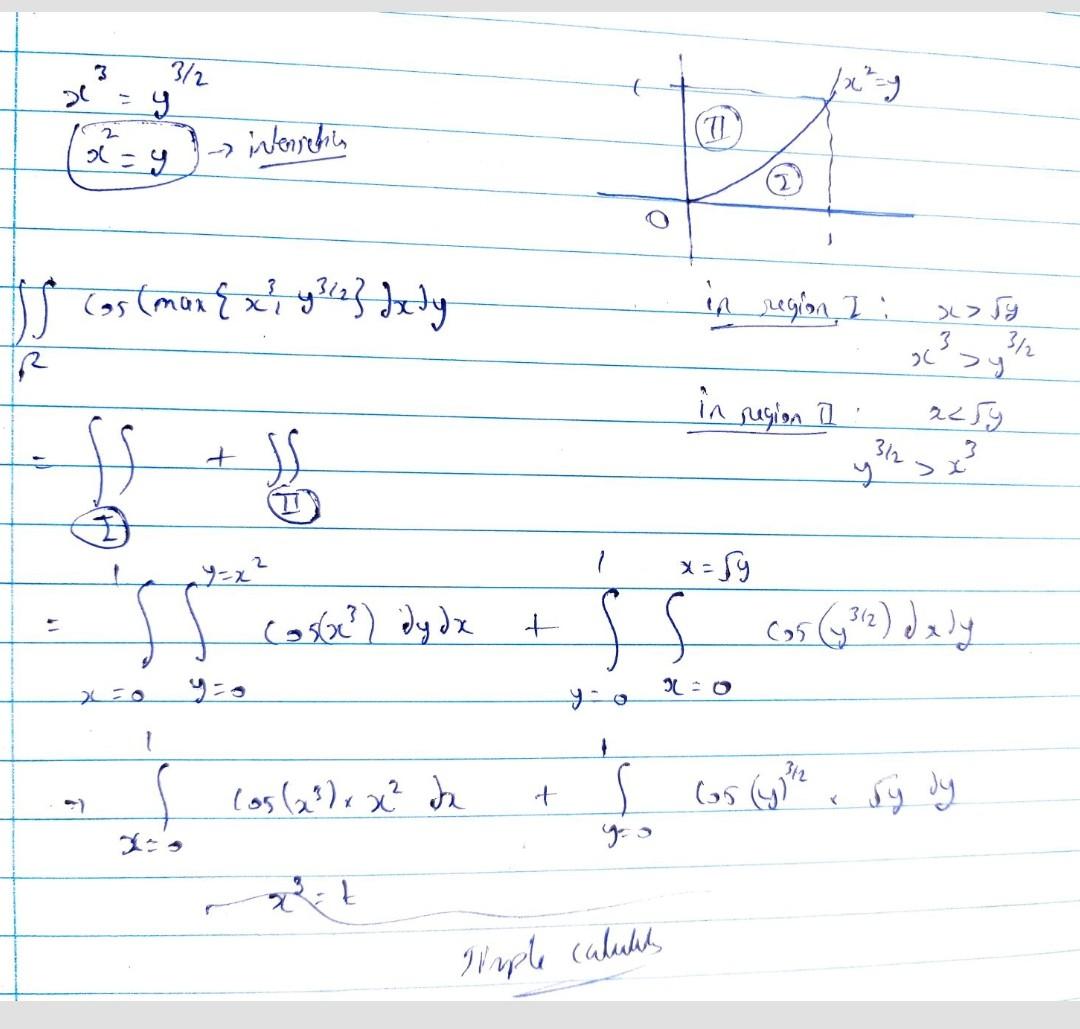 x³ = y^{3/2}
x² = y → intersection
x² = y
1
II
I
O
1
∬_R cos(max{x³, y^{3/2}} dx dy
in region I : x > √y
x³ > y^{3/2}
in region II : x < √y
y^{3/2} > x³
= ∬_I + ∬_II
= ∫_{x=0}^{1} ∫_{y=0}^{y=x²} cos(x³) dy dx + ∫_{y=0}^{1} ∫_{x=0}^{x=√y} cos(y^{3/2}) dx dy
⇒ ∫_{x=0}^{1} cos(x³) × x² dx + ∫_{y=0}^{1} cos(y)^{3/2} × √y dy
x³ = t
Simple calculus